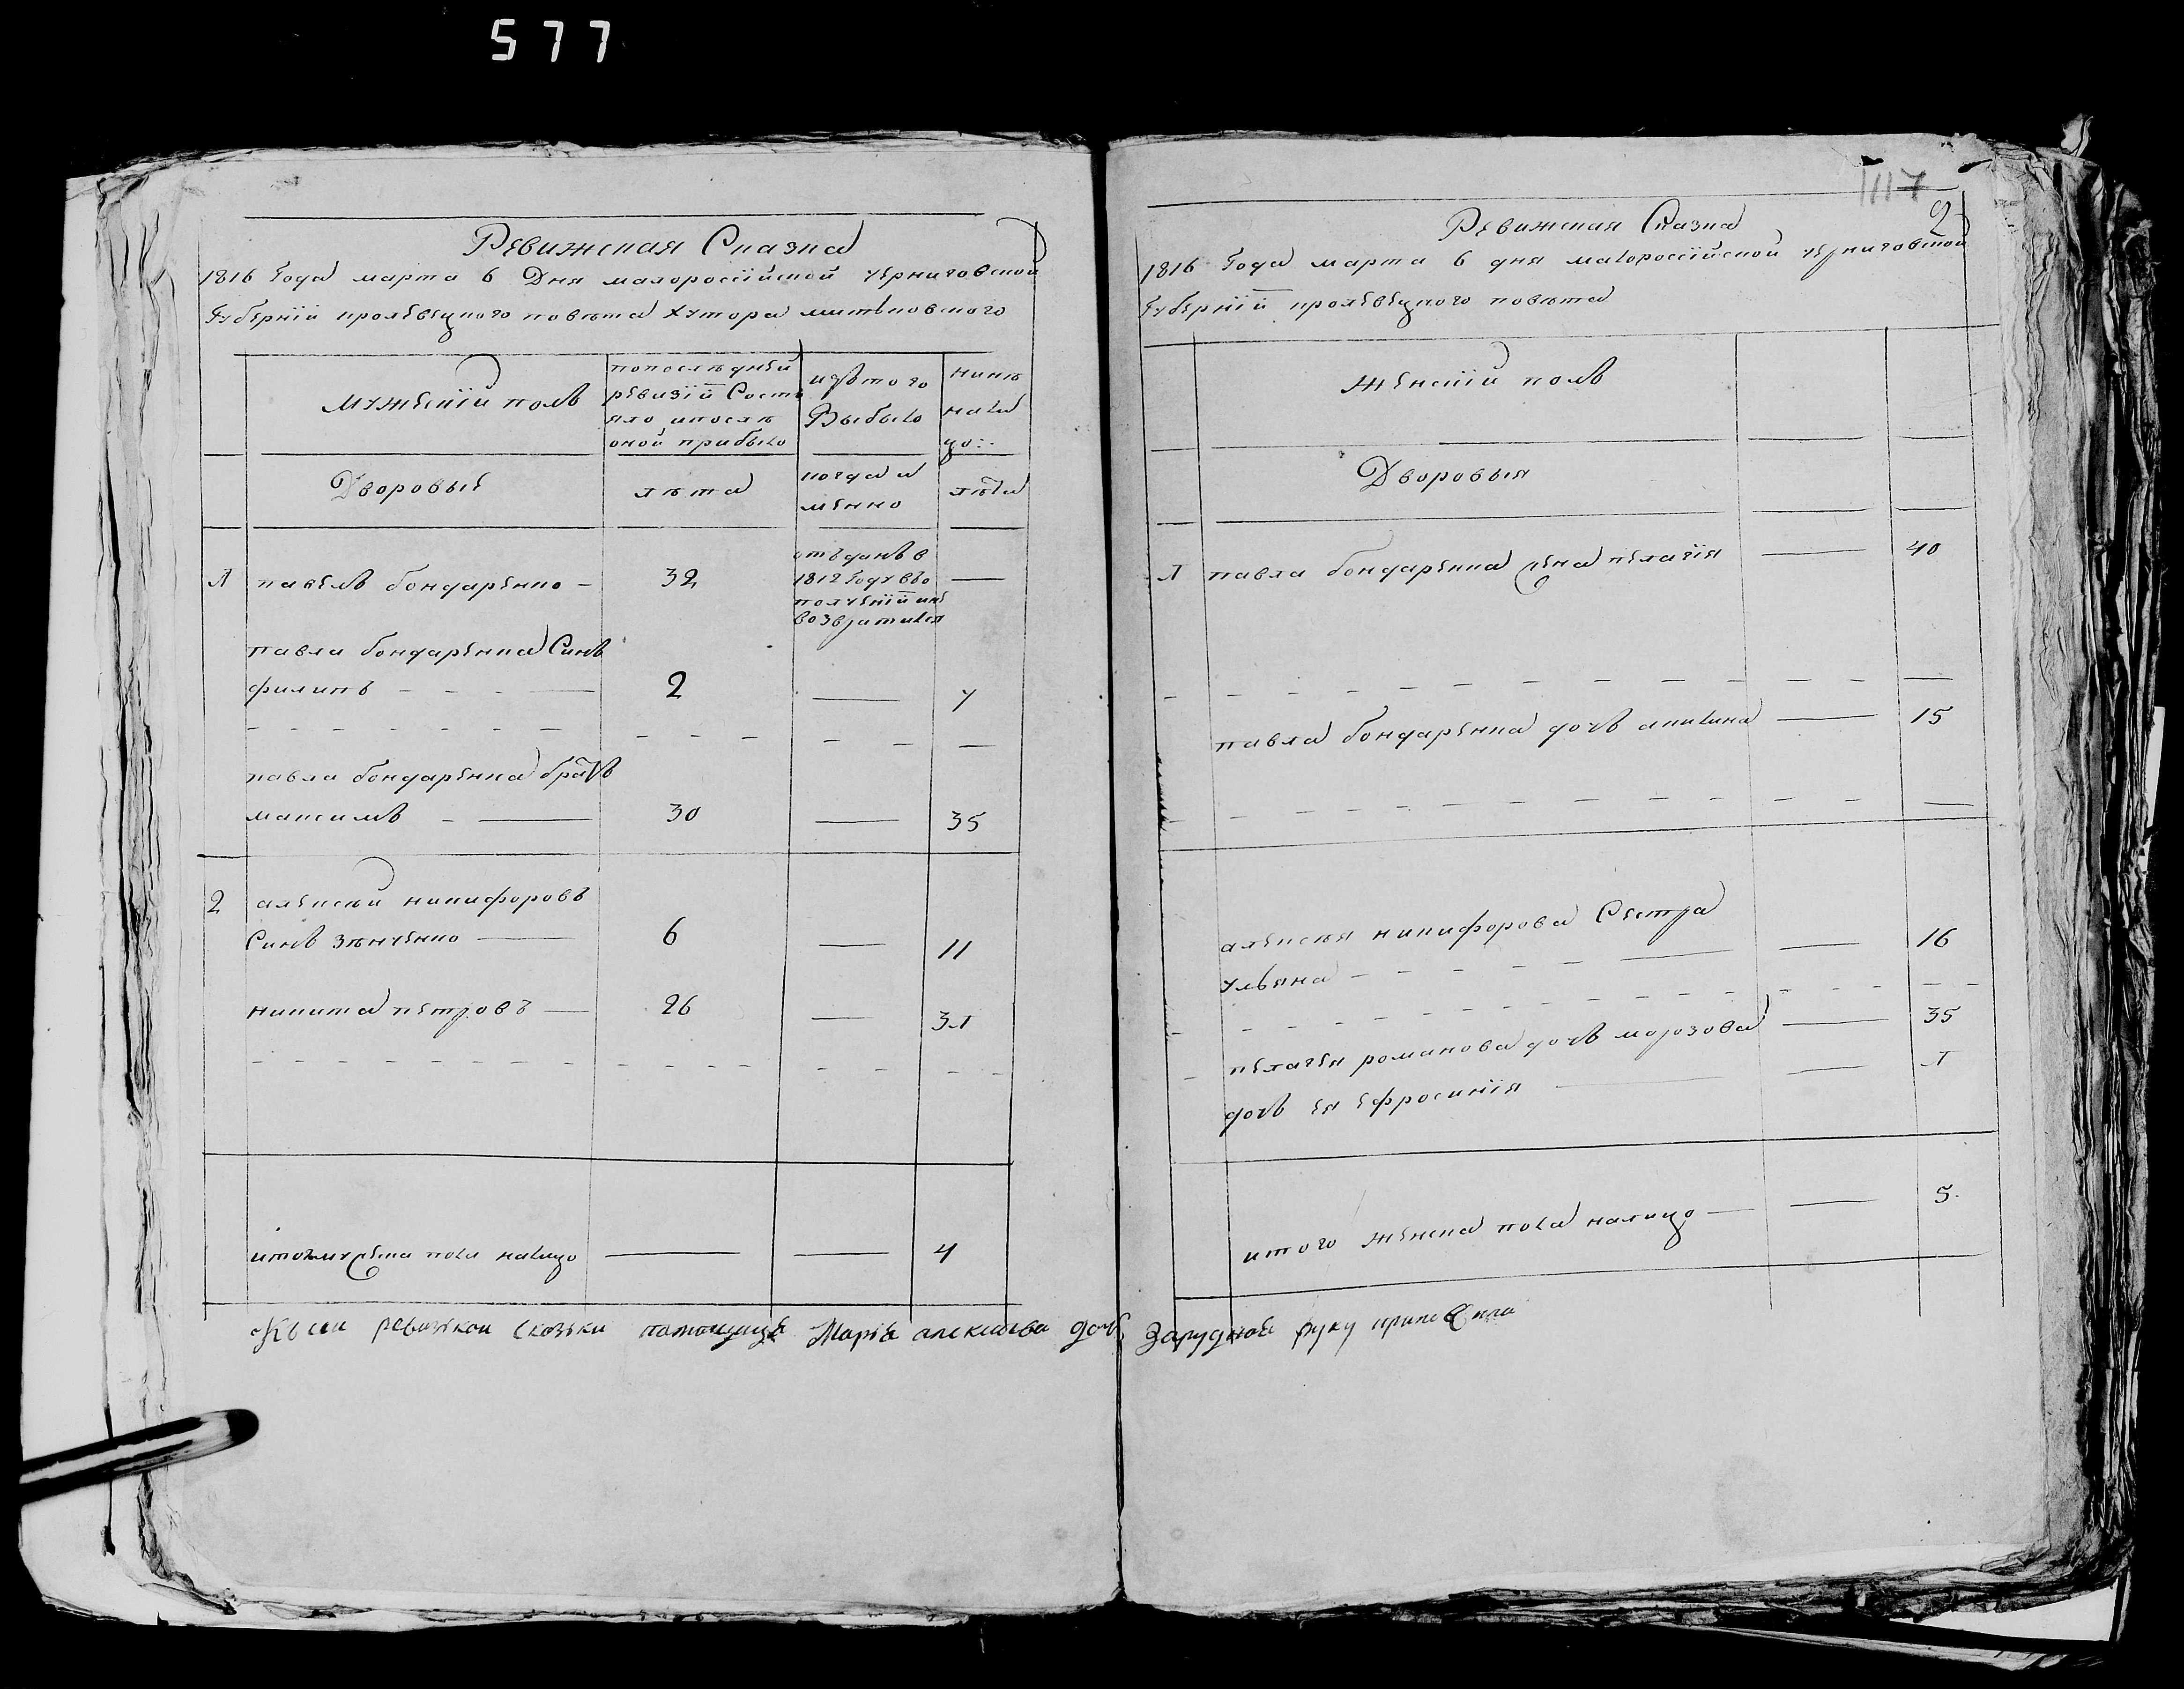 577
Ревижская Сказка
1816 Года марта 6 Дня малороссійской черниговской
Губерніи кролевецкого повѣта Хутора митьковского
Мужескій полъ
попослѣдней
ревизіи Состо
яло ипослѣ
оной прибыло
изътого
Выбыло
нинѣ
нали
цо:
Дворовые
лѣта
когда и
менно
лѣта
1 павелъ бондаренко - 32
отъданъ в
1812 Году въо
полченіи ине
возвратился
—
павла бондаренка Синъ
филипъ - - - — 2 — 7
павла бондаренка братъ
максимъ - — 30 — 35
2 алексей никифоровъ
Синъ зѣнченко — 6 — 11
никита петровъ — 26 — 31
итогомужеска пола налицо — — 4
117
2
Ревижская Сказка
1816 Года марта 6 дня малороссійской черниговской
Губерніи кролевецкого повѣта
женскій полъ
Дворовыя
1 павла бондаренка жена пелагія — 40
павла бондаренка дочъ акилина — 15
алексея никифорова Сестра
ульяна - - - - - — — 16
пелагея романова дочъ морозова — 35
дочъ ея ефросинія — — 1
итого женска пола налицо — — 5.
Къ сеи ревизкои сказъки помощица Маріе алексиева дочъ Зарудное руку приложила